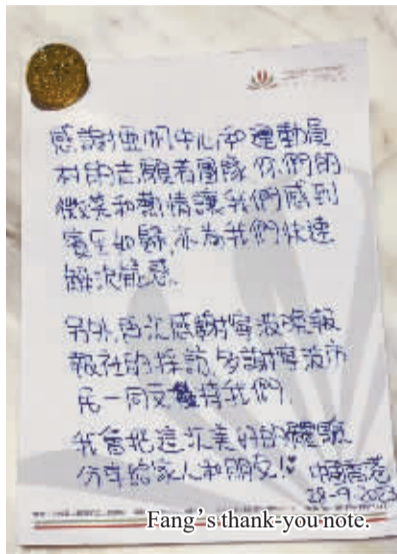 感謝亞帆中心和運動員
村的志願者團隊你們的
微笑和熱情讓我們感到
賓至如歸,亦為我們快速
解決疑惑.
另外,再次感謝寧波晚報
報社的採訪,多謝寧波市
民一同支持我們.
我會把這次美好的體驗
分享給家人和朋友!♥
中國香港
28-9.2023
Fang's thank-you note.